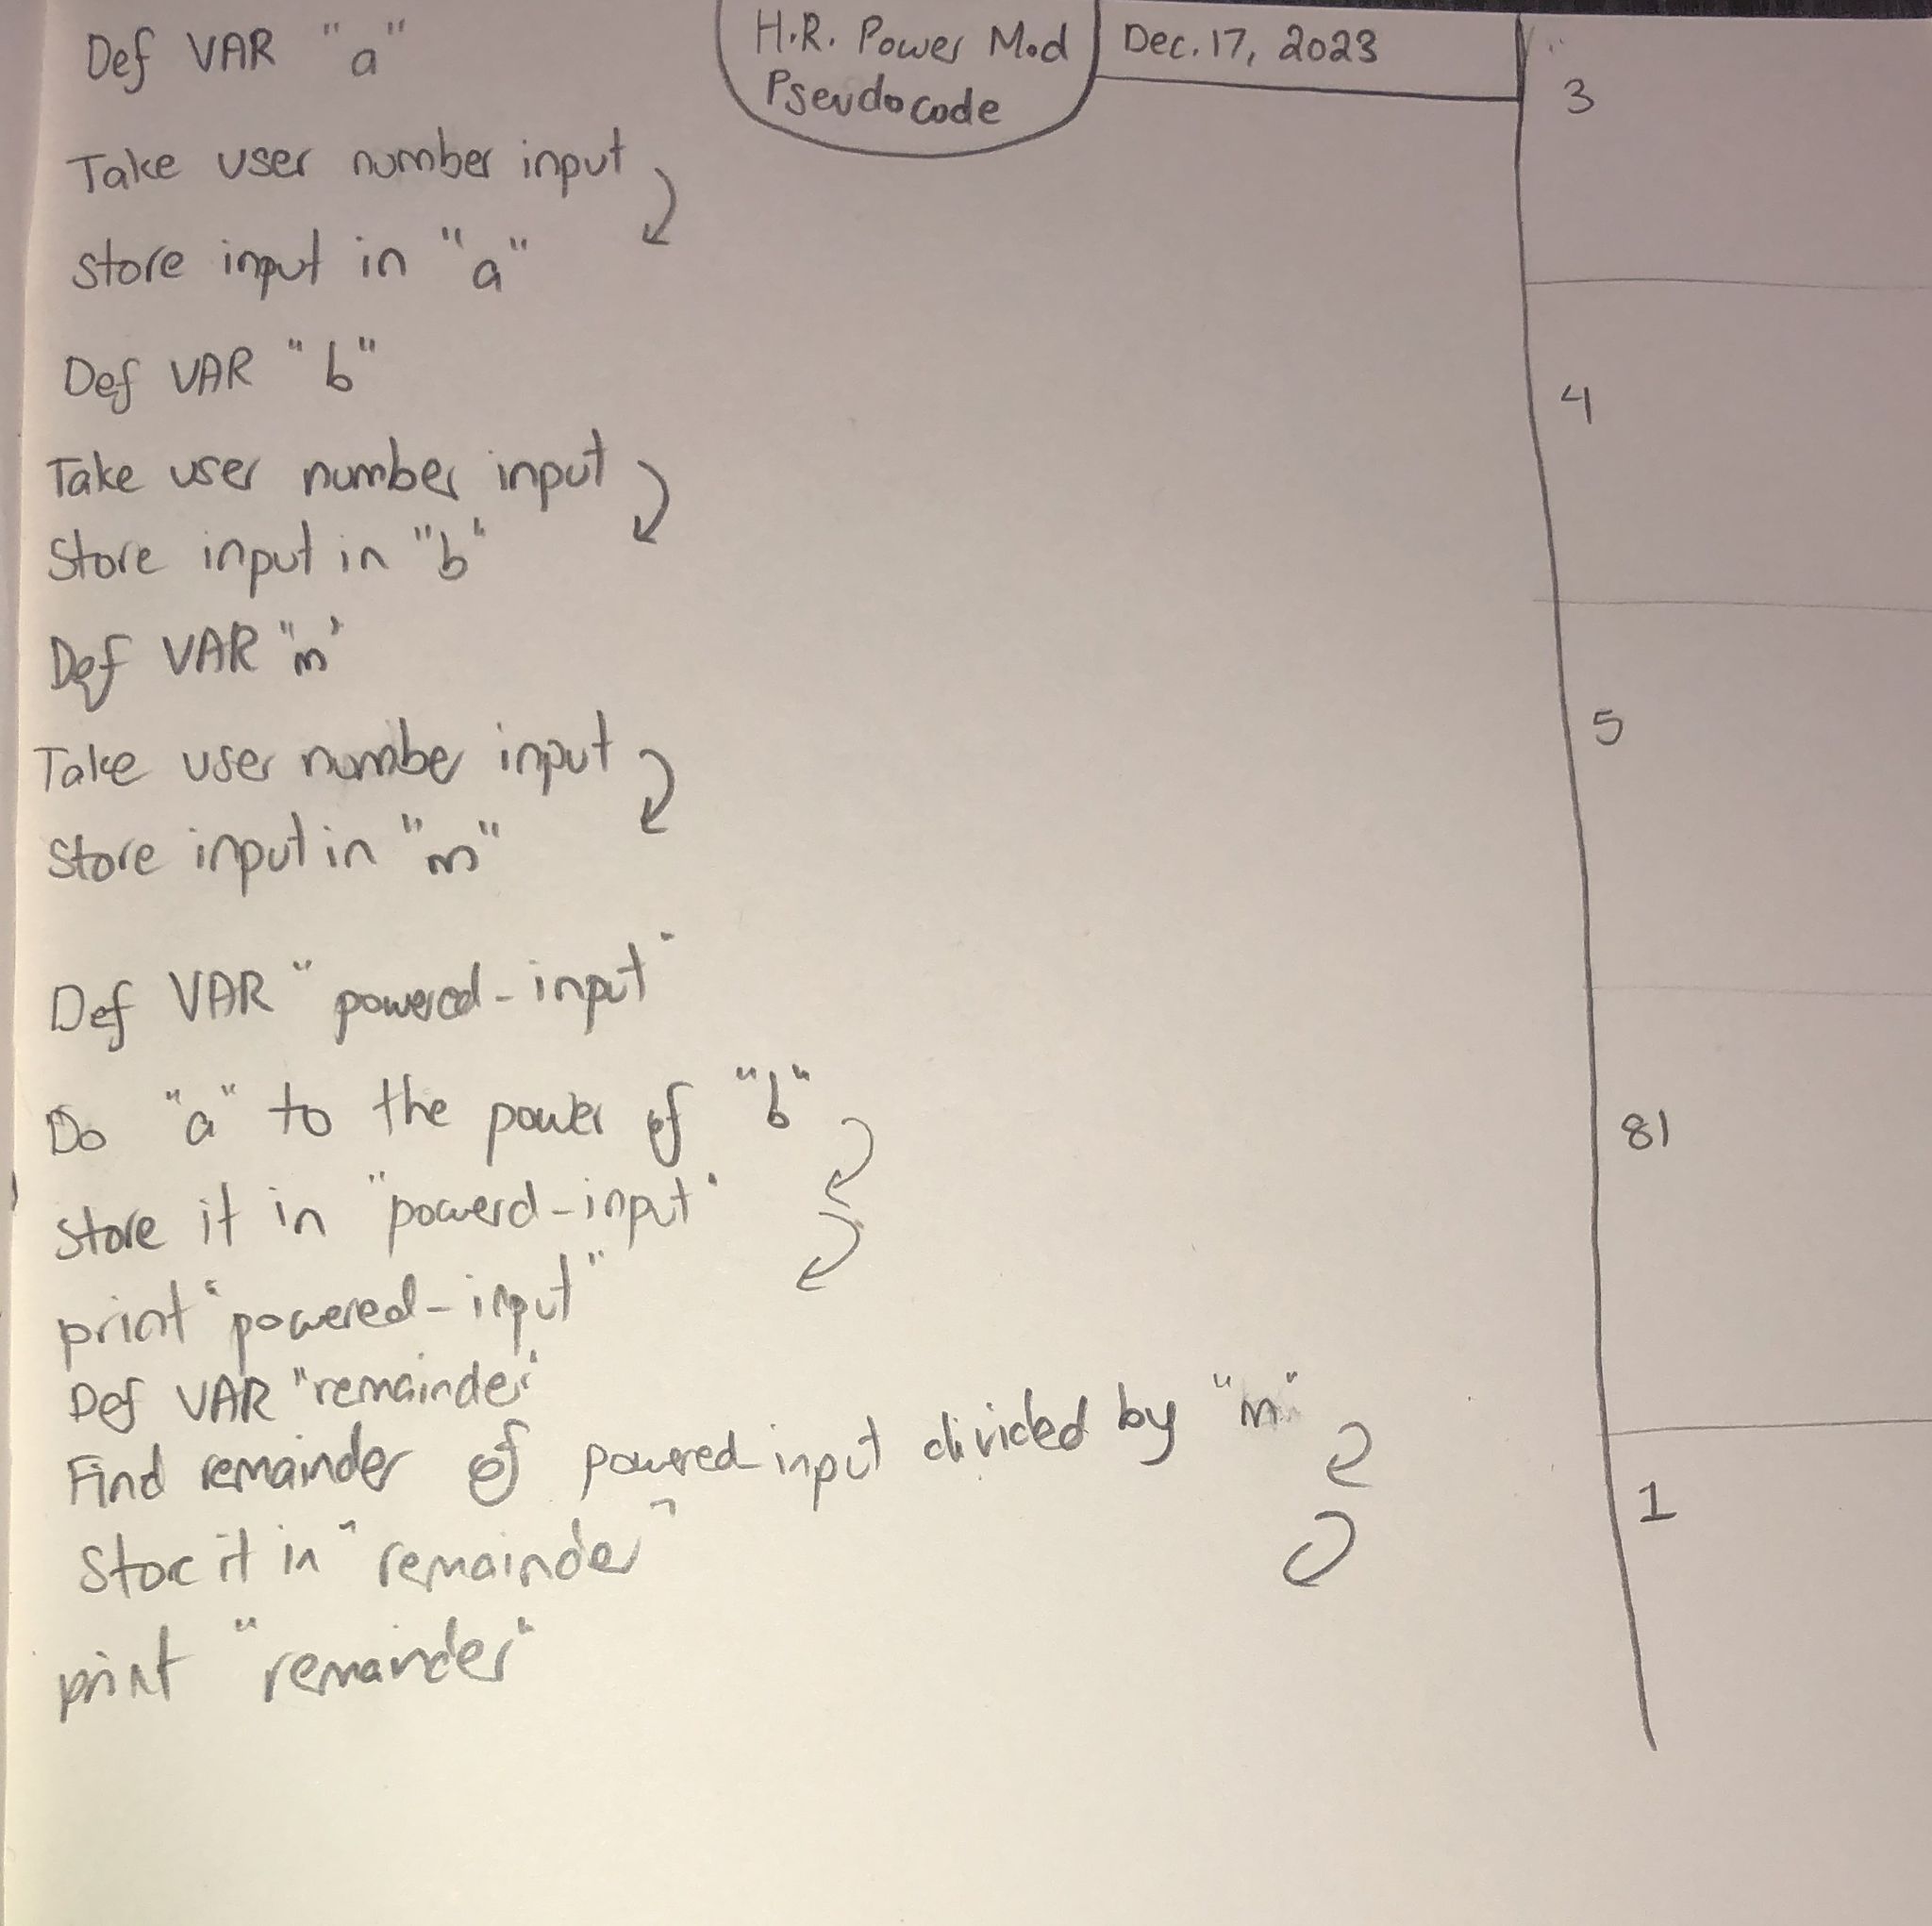 H.R. Power Mod
Pseudocode
Dec. 17, 2023
Def VAR "a"
Take user number input
store input in "a"
3
Def VAR "b"
Take user number input
Store input in "b"
4
Def VAR "m"
Take user number input
store input in "m"
5
Def VAR "powered-input"
Do "a" to the power of "b"
store it in "powerd-input"
print "powered-input"
81
Def VAR "remainder"
Find remainder of powered input divided by "m"
Store it in "remainder"
print "remainder"
1